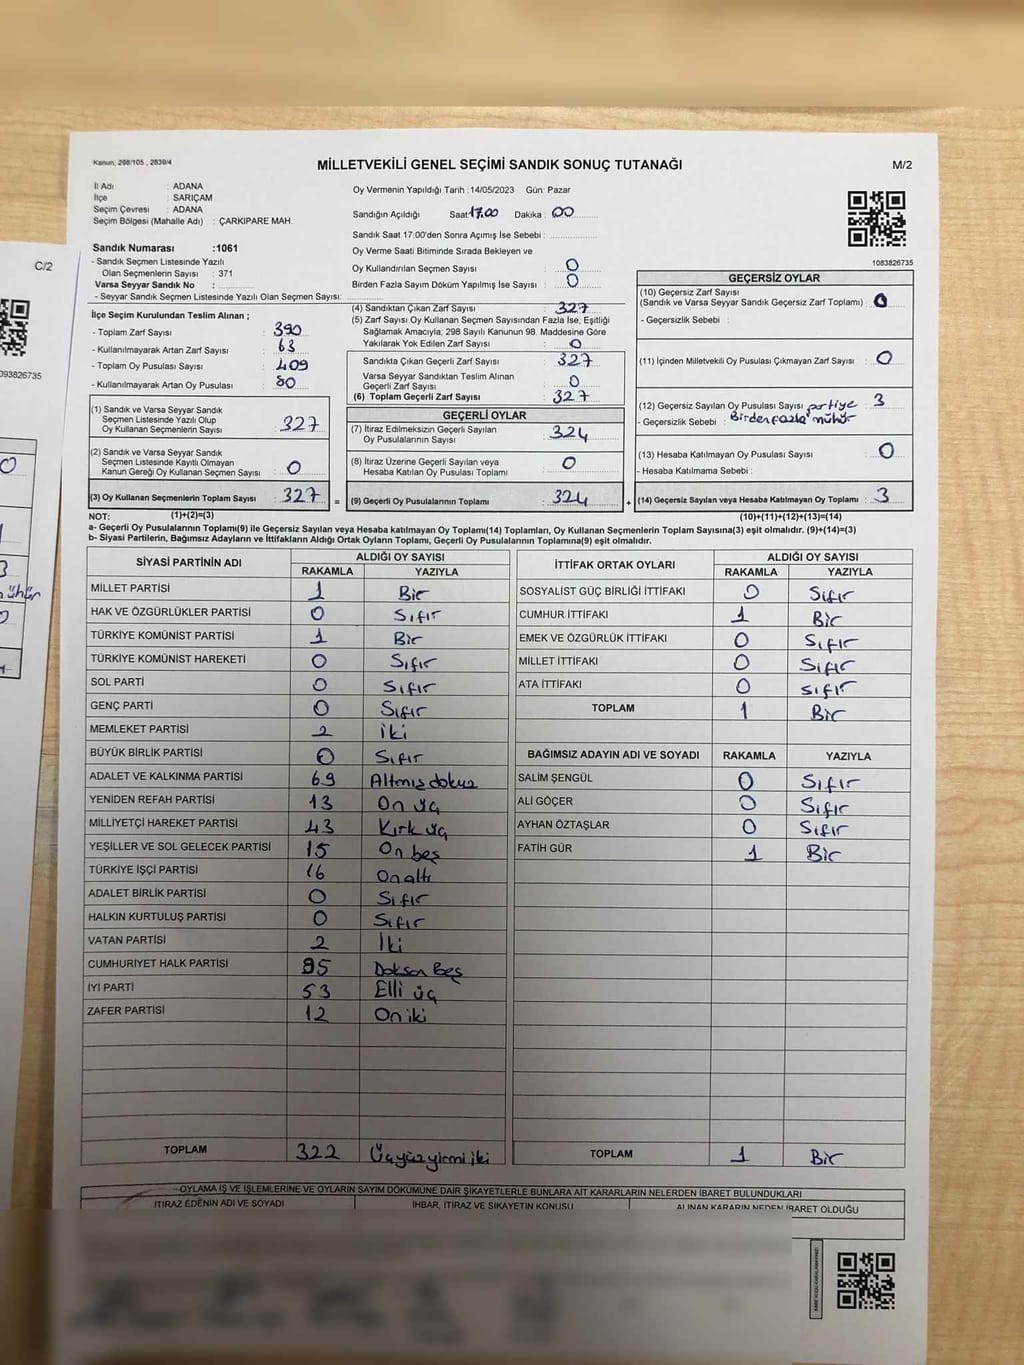 Kanun; 298/105 , 2839/4
MİLLETVEKİLİ GENEL SEÇİMİ SANDIK SONUÇ TUTANAĞI
M/2
İl Adı : ADANA
İlçe : SARIÇAM
Seçim Çevresi : ADANA
Seçim Bölgesi (Mahalle Adı) : ÇARKIPARE MAH.
Sandık Numarası :1061
- Sandık Seçmen Listesinde Yazılı
Olan Seçmenlerin Sayısı : 371
Varsa Seyyar Sandık No :
- Seyyar Sandık Seçmen Listesinde Yazılı Olan Seçmen Sayısı:
Oy Vermenin Yapıldığı Tarih :14/05/2023 Gün: Pazar
Sandığın Açıldığı Saat:17.00 Dakika : 00
Sandık Saat 17:00'den Sonra Açılmış İse Sebebi :
Oy Verme Saati Bitiminde Sırada Bekleyen ve
Oy Kullandırılan Seçmen Sayısı : 0
Birden Fazla Sayım Döküm Yapılmış İse Sayısı : 0
1083826735
İlçe Seçim Kurulundan Teslim Alınan ;
- Toplam Zarf Sayısı : 390
- Kullanılmayarak Artan Zarf Sayısı : 63
- Toplam Oy Pusulası Sayısı : 409
- Kullanılmayarak Artan Oy Pusulası : 80
(1) Sandık ve Varsa Seyyar Sandık
Seçmen Listesinde Yazılı Olup
Oy Kullanan Seçmenlerin Sayısı : 327
(2) Sandık ve Varsa Seyyar Sandık
Seçmen Listesinde Kayıtlı Olmayan
Kanun Gereği Oy Kullanan Seçmen Sayısı : 0
(3) Oy Kullanan Seçmenlerin Toplam Sayısı : 327
(1)+(2)=(3)
(4) Sandıktan Çıkan Zarf Sayısı : 327
(5) Zarf Sayısı Oy Kullanan Seçmen Sayısından Fazla İse, Eşitliği
Sağlamak Amacıyla; 298 Sayılı Kanunun 98. Maddesine Göre
Yakılarak Yok Edilen Zarf Sayısı : 0
Sandıkta Çıkan Geçerli Zarf Sayısı : 327
Varsa Seyyar Sandıktan Teslim Alınan
Geçerli Zarf Sayısı : 0
(6) Toplam Geçerli Zarf Sayısı : 327
GEÇERLİ OYLAR
(7) İtiraz Edilmeksizin Geçerli Sayılan
Oy Pusulalarının Sayısı : 324
(8) İtiraz Üzerine Geçerli Sayılan veya
Hesaba Katılan Oy Pusulası Toplamı : 0
= (9) Geçerli Oy Pusulalarının Toplamı : 324
GEÇERSİZ OYLAR
(10) Geçersiz Zarf Sayısı
(Sandık ve Varsa Seyyar Sandık Geçersiz Zarf Toplamı) : 0
- Geçersizlik Sebebi :
(11) İçinden Milletvekili Oy Pusulası Çıkmayan Zarf Sayısı : 0
(12) Geçersiz Sayılan Oy Pusulası Sayısı : 3
- Geçersizlik Sebebi : Birden fazla partiye mühür
(13) Hesaba Katılmayan Oy Pusulası Sayısı : 0
- Hesaba Katılmama Sebebi :
+ (14) Geçersiz Sayılan veya Hesaba Katılmayan Oy Toplamı : 3
(10)+(11)+(12)+(13)=(14)
NOT:
a- Geçerli Oy Pusulalarının Toplamı(9) ile Geçersiz Sayılan veya Hesaba katılmayan Oy Toplamı(14) Toplamları, Oy Kullanan Seçmenlerin Toplam Sayısına(3) eşit olmalıdır. (9)+(14)=(3)
b- Siyasi Partilerin, Bağımsız Adayların ve İttifakların Aldığı Ortak Oyların Toplamı, Geçerli Oy Pusulalarının Toplamına(9) eşit olmalıdır.
SİYASİ PARTİNİN ADI ALDIĞI OY SAYISI
RAKAMLA YAZIYLA
MİLLET PARTİSİ 1 Bir
HAK VE ÖZGÜRLÜKLER PARTİSİ 0 Sıfır
TÜRKİYE KOMÜNİST PARTİSİ 1 Bir
TÜRKİYE KOMÜNİST HAREKETİ 0 Sıfır
SOL PARTİ 0 Sıfır
GENÇ PARTİ 0 Sıfır
MEMLEKET PARTİSİ 2 iki
BÜYÜK BİRLİK PARTİSİ 0 Sıfır
ADALET VE KALKINMA PARTİSİ 69 Altmış dokuz
YENİDEN REFAH PARTİSİ 13 On üç
MİLLİYETÇİ HAREKET PARTİSİ 43 Kırk üç
YEŞİLLER VE SOL GELECEK PARTİSİ 15 On beş
TÜRKİYE İŞÇİ PARTİSİ 16 On altı
ADALET BİRLİK PARTİSİ 0 Sıfır
HALKIN KURTULUŞ PARTİSİ 0 Sıfır
VATAN PARTİSİ 2 İki
CUMHURİYET HALK PARTİSİ 95 Doksan Beş
İYİ PARTİ 53 Elli üç
ZAFER PARTİSİ 12 On iki
TOPLAM 322 Üçyüz yirmi iki
İTTİFAK ORTAK OYLARI ALDIĞI OY SAYISI
RAKAMLA YAZIYLA
SOSYALİST GÜÇ BİRLİĞİ İTTİFAKI 0 Sıfır
CUMHUR İTTİFAKI 1 Bir
EMEK VE ÖZGÜRLÜK İTTİFAKI 0 Sıfır
MİLLET İTTİFAKI 0 Sıfır
ATA İTTİFAKI 0 sıfır
TOPLAM 1 Bir
BAĞIMSIZ ADAYIN ADI VE SOYADI RAKAMLA YAZIYLA
SALİM ŞENGÜL 0 Sıfır
ALİ GÖÇER 0 Sıfır
AYHAN ÖZTAŞLAR 0 Sıfır
FATİH GÜR 1 Bir
TOPLAM 1 Bir
OYLAMA İŞ VE İŞLEMLERİNE VE OYLARIN SAYIM DÖKÜMÜNE DAİR ŞİKAYETLERLE BUNLARA AİT KARARLARIN NELERDEN İBARET BULUNDUKLARI
İTİRAZ EDENİN ADI VE SOYADI İHBAR, İTİRAZ VE ŞİKAYETİN KONUSU ALINAN KARARIN NEDEN İBARET OLDUĞU
C/2
093826735
0
3
mühür